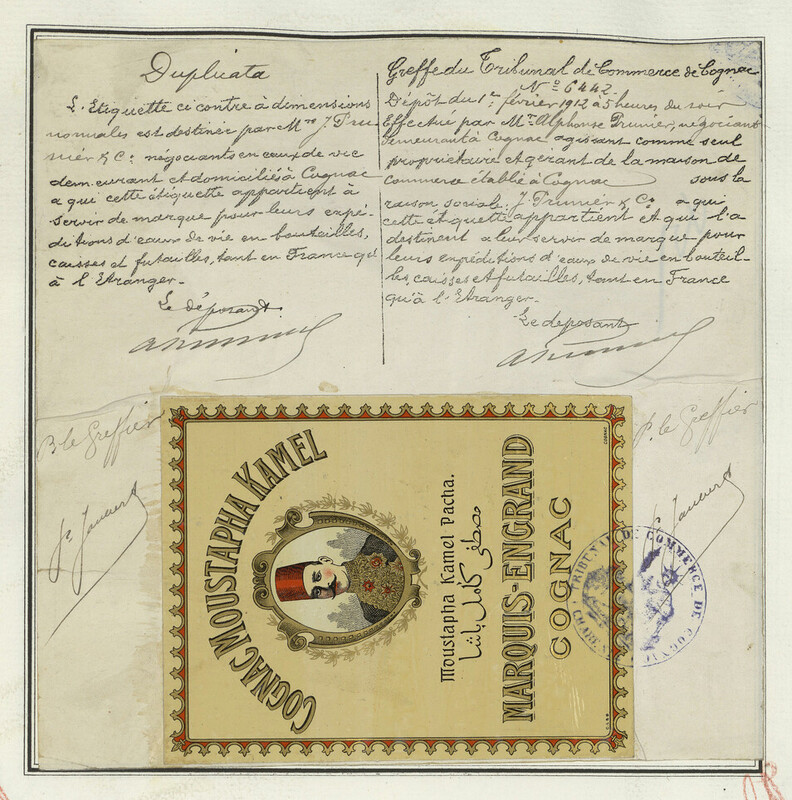 Duplicata
L'Etiquette ci contre à dimensions
normales est destinée par Mrs J. Pru
nier & Co. négociants en eaux de vie
demeurant et domiciliés à Cognac
a qui cette étiquette appartient à
servir de marque pour leurs expé-
ditions d'eaux de vie en bouteilles,
caisses et futailles, tant en France qu'
à l'Etranger.-
Le déposant.
Greffe du Tribunal de Commerce de Cognac
No 6442
Dépôt du 1er février 1912 à 5 heures du soir
Effectué par Mr Alphonse Prunier, négociant
demeurant à Cognac agissant comme seul
propriétaire et gérant de la maison de
commerce établie à Cognac sous la
raison sociale: J. Prunier & Co. a qui
cette étiquette appartient et qui l'a
destinent a leur servir de marque pour
leurs expéditions d'eaux de vie en bouteil-
les, caisses et futailles, tant en France
qu'à l'Etranger.-
Le deposant
P. le Greffier
P. le Greffier
COGNAC MOUSTAPHA KAMEL
Moustapha Kamel Pacha.
مصطفى كامل باشا
MARQUIS-ENGRAND
COGNAC
TRIBUNAL DE COMMERCE DE COGNAC